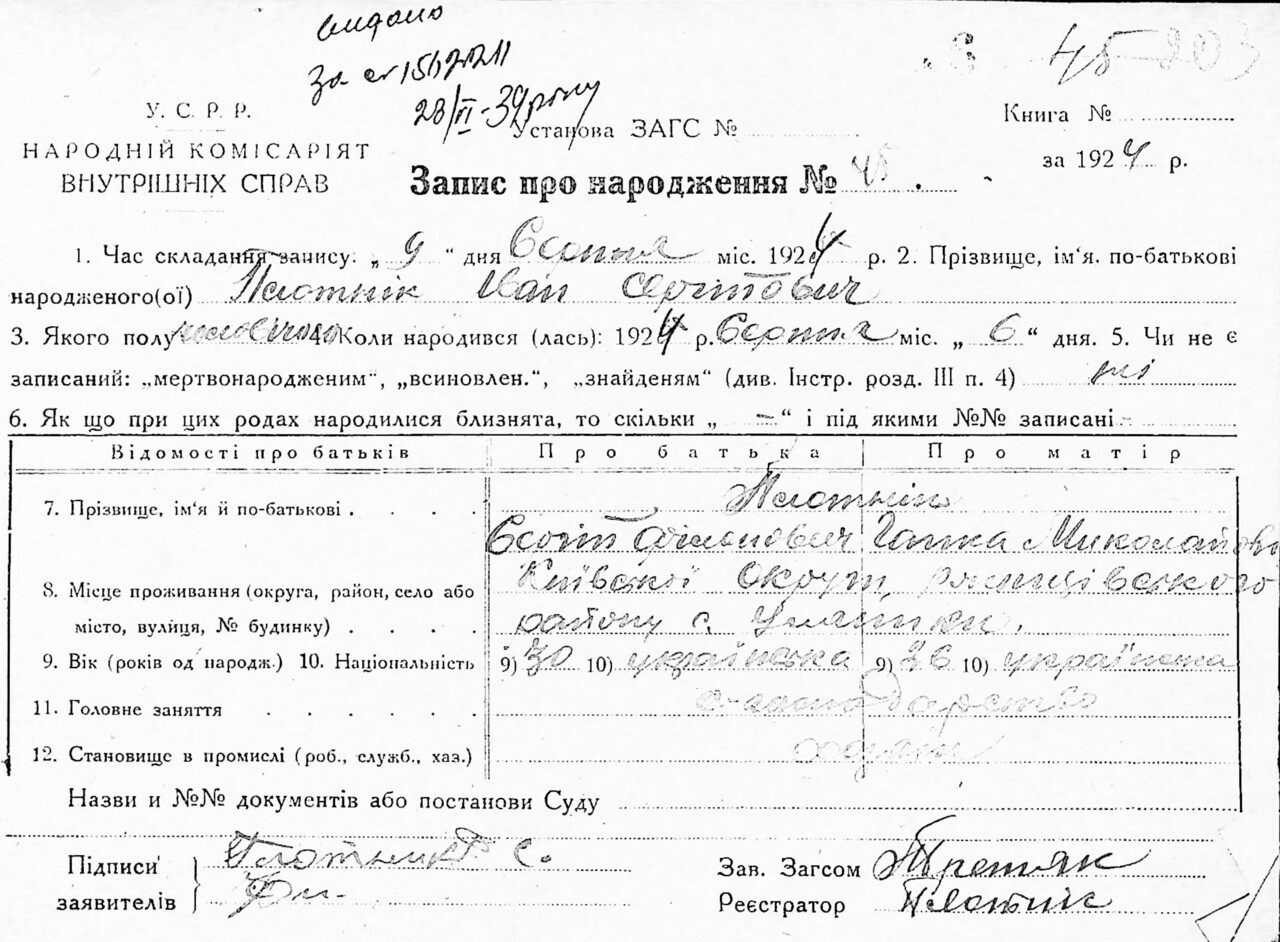 видано
За №
28/VI-39 року
45
У. С. Р. Р.
Установа ЗАГС №
Книга №
НАРОДНІЙ КОМІСАРІЯТ
ВНУТРІШНІХ СПРАВ
за 1924 р.
Запис про народження № 45.
1. Час складання запису: „ 9 “ дня Серпня міс. 1924 р. 2. Прізвище, ім'я. по-батькові
народженого(ої) Плотнік Іван Сергійович
3. Якого полу чоловічого 4. Коли народився (лась): 1924 р. Серпня міс. „ 6 “ дня. 5. Чи не є
записаний: „мертвонародженим“, „всиновлен.“, „знайденям“ (див. Інстр. розд. III п. 4) ні
6. Як що при цих родах народилися близнята, то скільки „ = “ і під якими №№ записані -
Відомості про батьків Про батька Про матір
7. Прізвище, ім'я й по-батькові . . . . Плотнік
Сергій Філіпович Ганка Миколайовн
8. Місце проживання (округа, район, село або Київської Округ,
місто, вулиця, № будинку) . . . . району с.
9. Вік (років од народж.) 10. Національність 9) 30 10) українська 9) 26 10) українська
11. Головне заняття . . . . . . господарство
12. Становище в промислі (роб., служб., хаз.)
Назви и №№ документів або постанови Суду
Підписи заявителів Плотник С.
Зав. Загсом Третяк
Реєстратор Плотнік